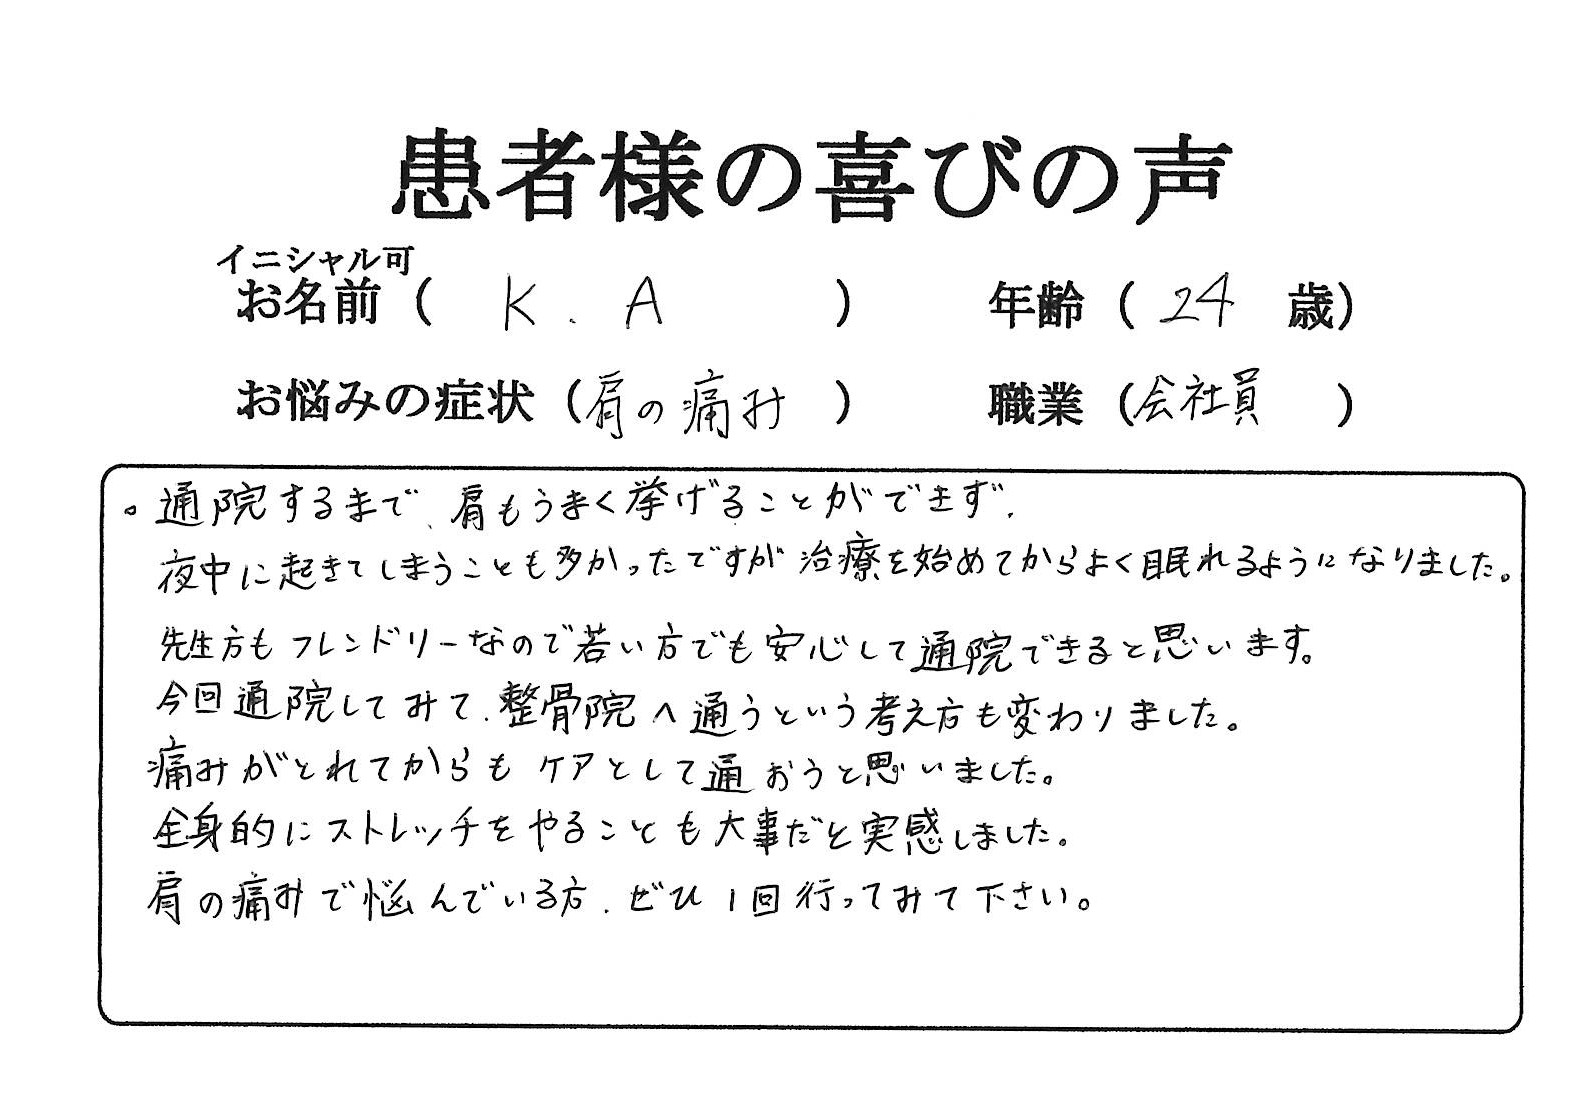 患者様の喜びの声
イニシャル可
お名前（ K . A ） 年齢（ 24 歳）
お悩みの症状（肩の痛み ） 職業（会社員 ）
。通院するまで、肩もうまく挙げることができず、
夜中に起きてしまうことも多かったですが治療を始めてからよく眠れるようになりました。
先生方もフレンドリーなので若い方でも安心して通院できると思います。
今回通院してみて、整骨院へ通うという考え方も変わりました。
痛みがとれてからもケアとして通おうと思いました。
全身的にストレッチをやることも大事だと実感しました。
肩の痛みで悩んでいる方、ぜひ1回行ってみて下さい。